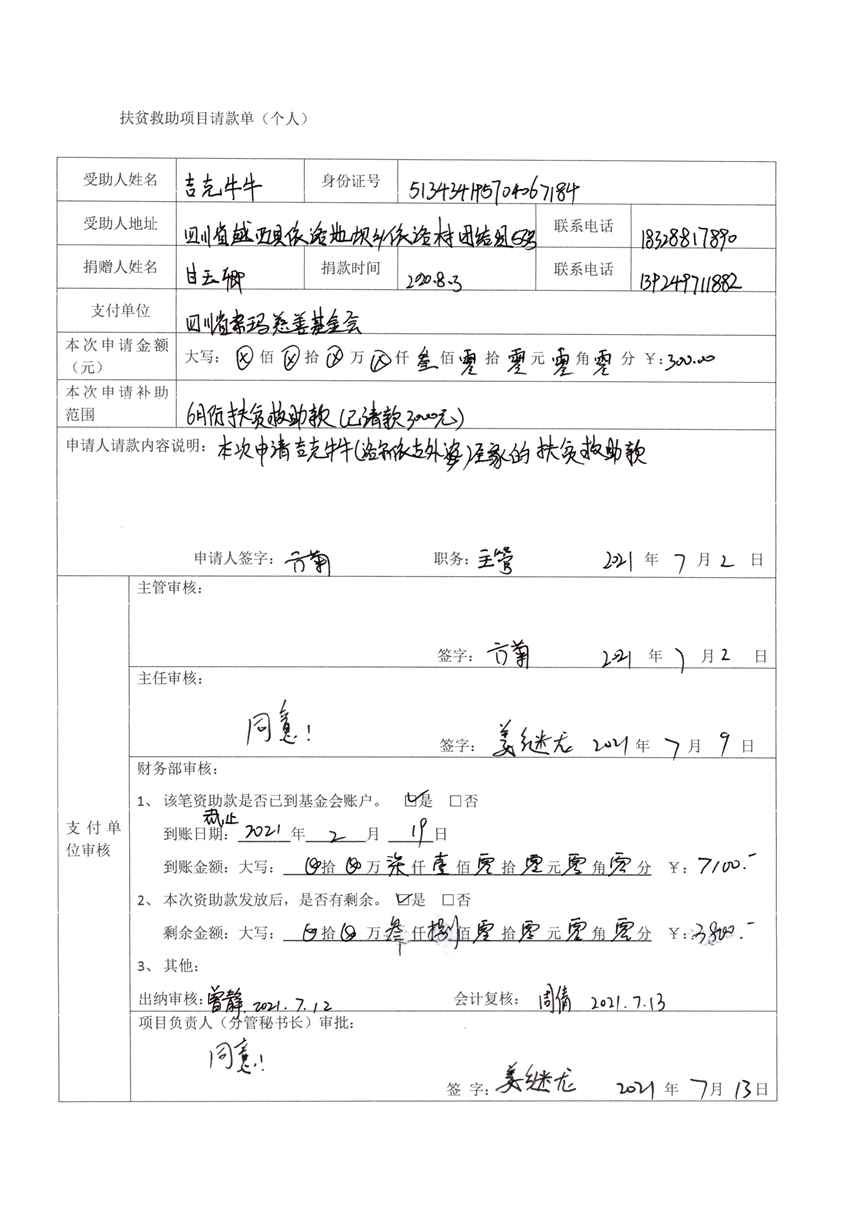 扶贫救助项目请款单（个人）
受助人姓名 吉克牛牛 身份证号
受助人地址 四川省越西县依洛地坝乡依洛村团结组 联系电话 18328817890
捐赠人姓名 甘玉卿 捐款时间 2020.8.3 联系电话 139249711882
支付单位 四川省索玛慈善基金会
本次申请金额（元） 大写： ⊗ 佰 ⊗ 拾 ⊗ 万 ⊗ 仟 叁 佰 零 拾 零 元 零 角 零 分 ￥:300.00
本次申请补助范围 6月份扶贫救助款（已请款3000元）
申请人请款内容说明：本次申请吉克牛牛 外婆 家的扶贫救助款
申请人签字： 方菊 职务：主管 2021 年 7 月 2 日
支付单位审核
主管审核：
签字： 方菊 2021 年 7 月 2 日
主任审核：
同意！
签字： 姜继龙 2021 年 7 月 9 日
财务部审核：
1、 该笔资助款是否已到基金会账户。 ☑是 □否
截止
到账日期： 2021 年 2 月 19 日
到账金额：大写： ⊗ 拾 ⊗ 万 柒 仟 壹 佰 零 拾 零 元 零 角 零 分 ￥：7100.-
2、 本次资助款发放后，是否有剩余。 ☑是 □否
剩余金额：大写： ⊗ 拾 ⊗ 万 叁 仟 捌 佰 零 拾 零 元 零 角 零 分 ￥：3800.-
3、 其他：
出纳审核：曾静 2021.7.12 会计复核： 周倩 2021.7.13
项目负责人（分管秘书长）审批：
同意！
签 字： 姜继龙 2021 年 7 月 13 日